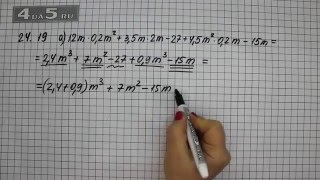 4
DA
5.RU
24.19 а) 12m·0,2m² + 3,5m·2m - 27 + 4,5m²·0,2m - 15m =
= 2,4m³ + 7m² - 27 + 0,9m³ - 15m =
= (2,4+0,9)m³ + 7m² - 15m